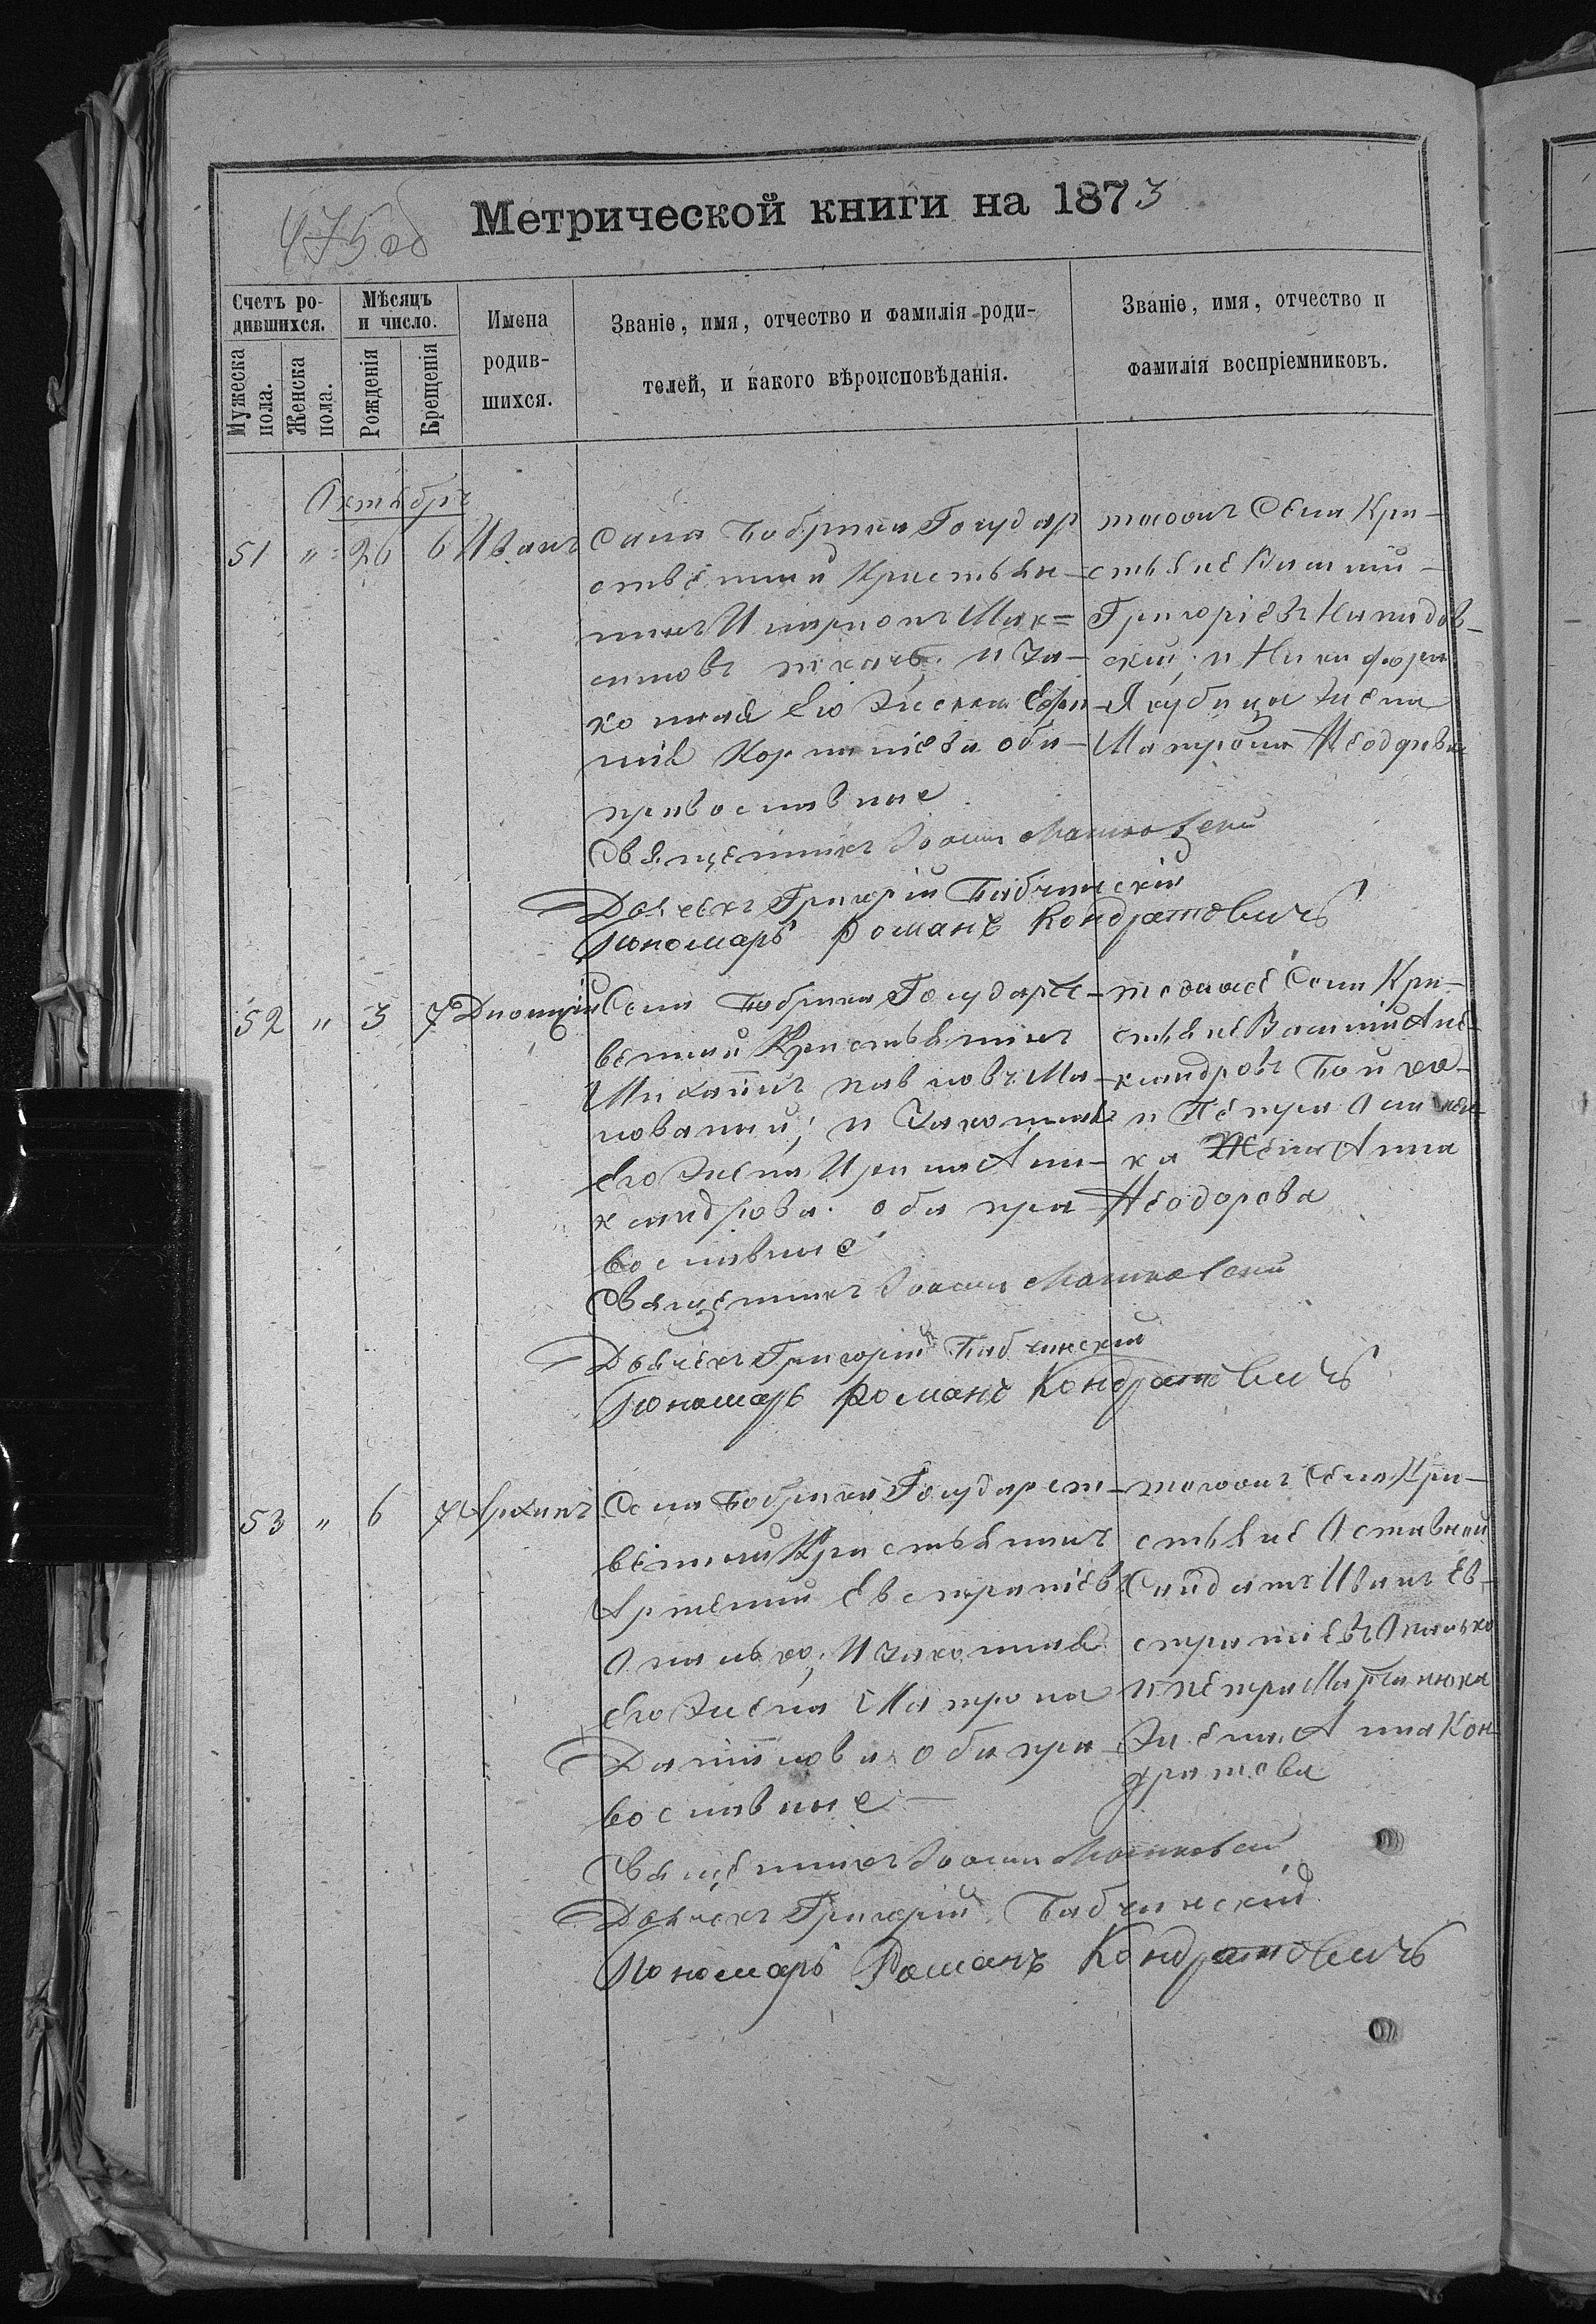 475 об
Метрической книги на 1873
Счетъ ро-
дившихся.
Мужеска
пола.
Женска
пола.
Мѣсяцъ
и число.
Рожденія
Крещенія
Имена
родив-
шихся.
Званіе, имя, отчество и фамилія роди-
телей, и какого вѣроисповѣданія.
Званіе, имя, отчество и
фамилія воспріемниковъ.
Октябрь
51 " 26 6 Иванъ
Села Бобрики Государ
ственный Кристьян-
инъ Иларионъ Мак=
симовъ ткачъ; и За-
конная Его Жена Ефи-
мія Корнилієва оба
православные
Священникъ Іоаннъ
Дьячекъ Григорій Бабчинскій
Пономарь Романъ Кондратовичъ
тогожъ Села Кри-
стьяне Василий
Григоріевъ
ский; и Никифора
Якубица Жена
Матрона Ѳеодорова
52 " 3 7 Дионисій
Села Бобрики Государст-
венний Кристьянинъ
Михаилъ Павловъ Ма-
лованый; и Законная
его Жена Ирина Але-
ксандрова оба пра
вославные
Священникъ Іоаннъ
Дьячекъ Григорій Бабчинскій
Пономарь Романъ Кондратовичъ
тогоже Села Кри-
стьяне Василий Але-
ксандровъ Бойко
и Петра
ка Жена Анна
Ѳеодорова
53 " 6 7 Архипъ
Села Бобрики Государст-
венный Кристьянинъ
Артемий Евстратіевъ
Опалько; и законная
его Жена Матрона
Данилова оба пра
вославные
Священникъ Іоаннъ
Дьячекъ Григорій Бабчинскій
Пономарь Романъ Кондратовичъ
тогожъ Села Кри-
стьяне Оставной
Салдатъ Иванъ Ев-
стратіевъ Опалько
и Петра Мартинюка
Жена Анна Кон-
дратова